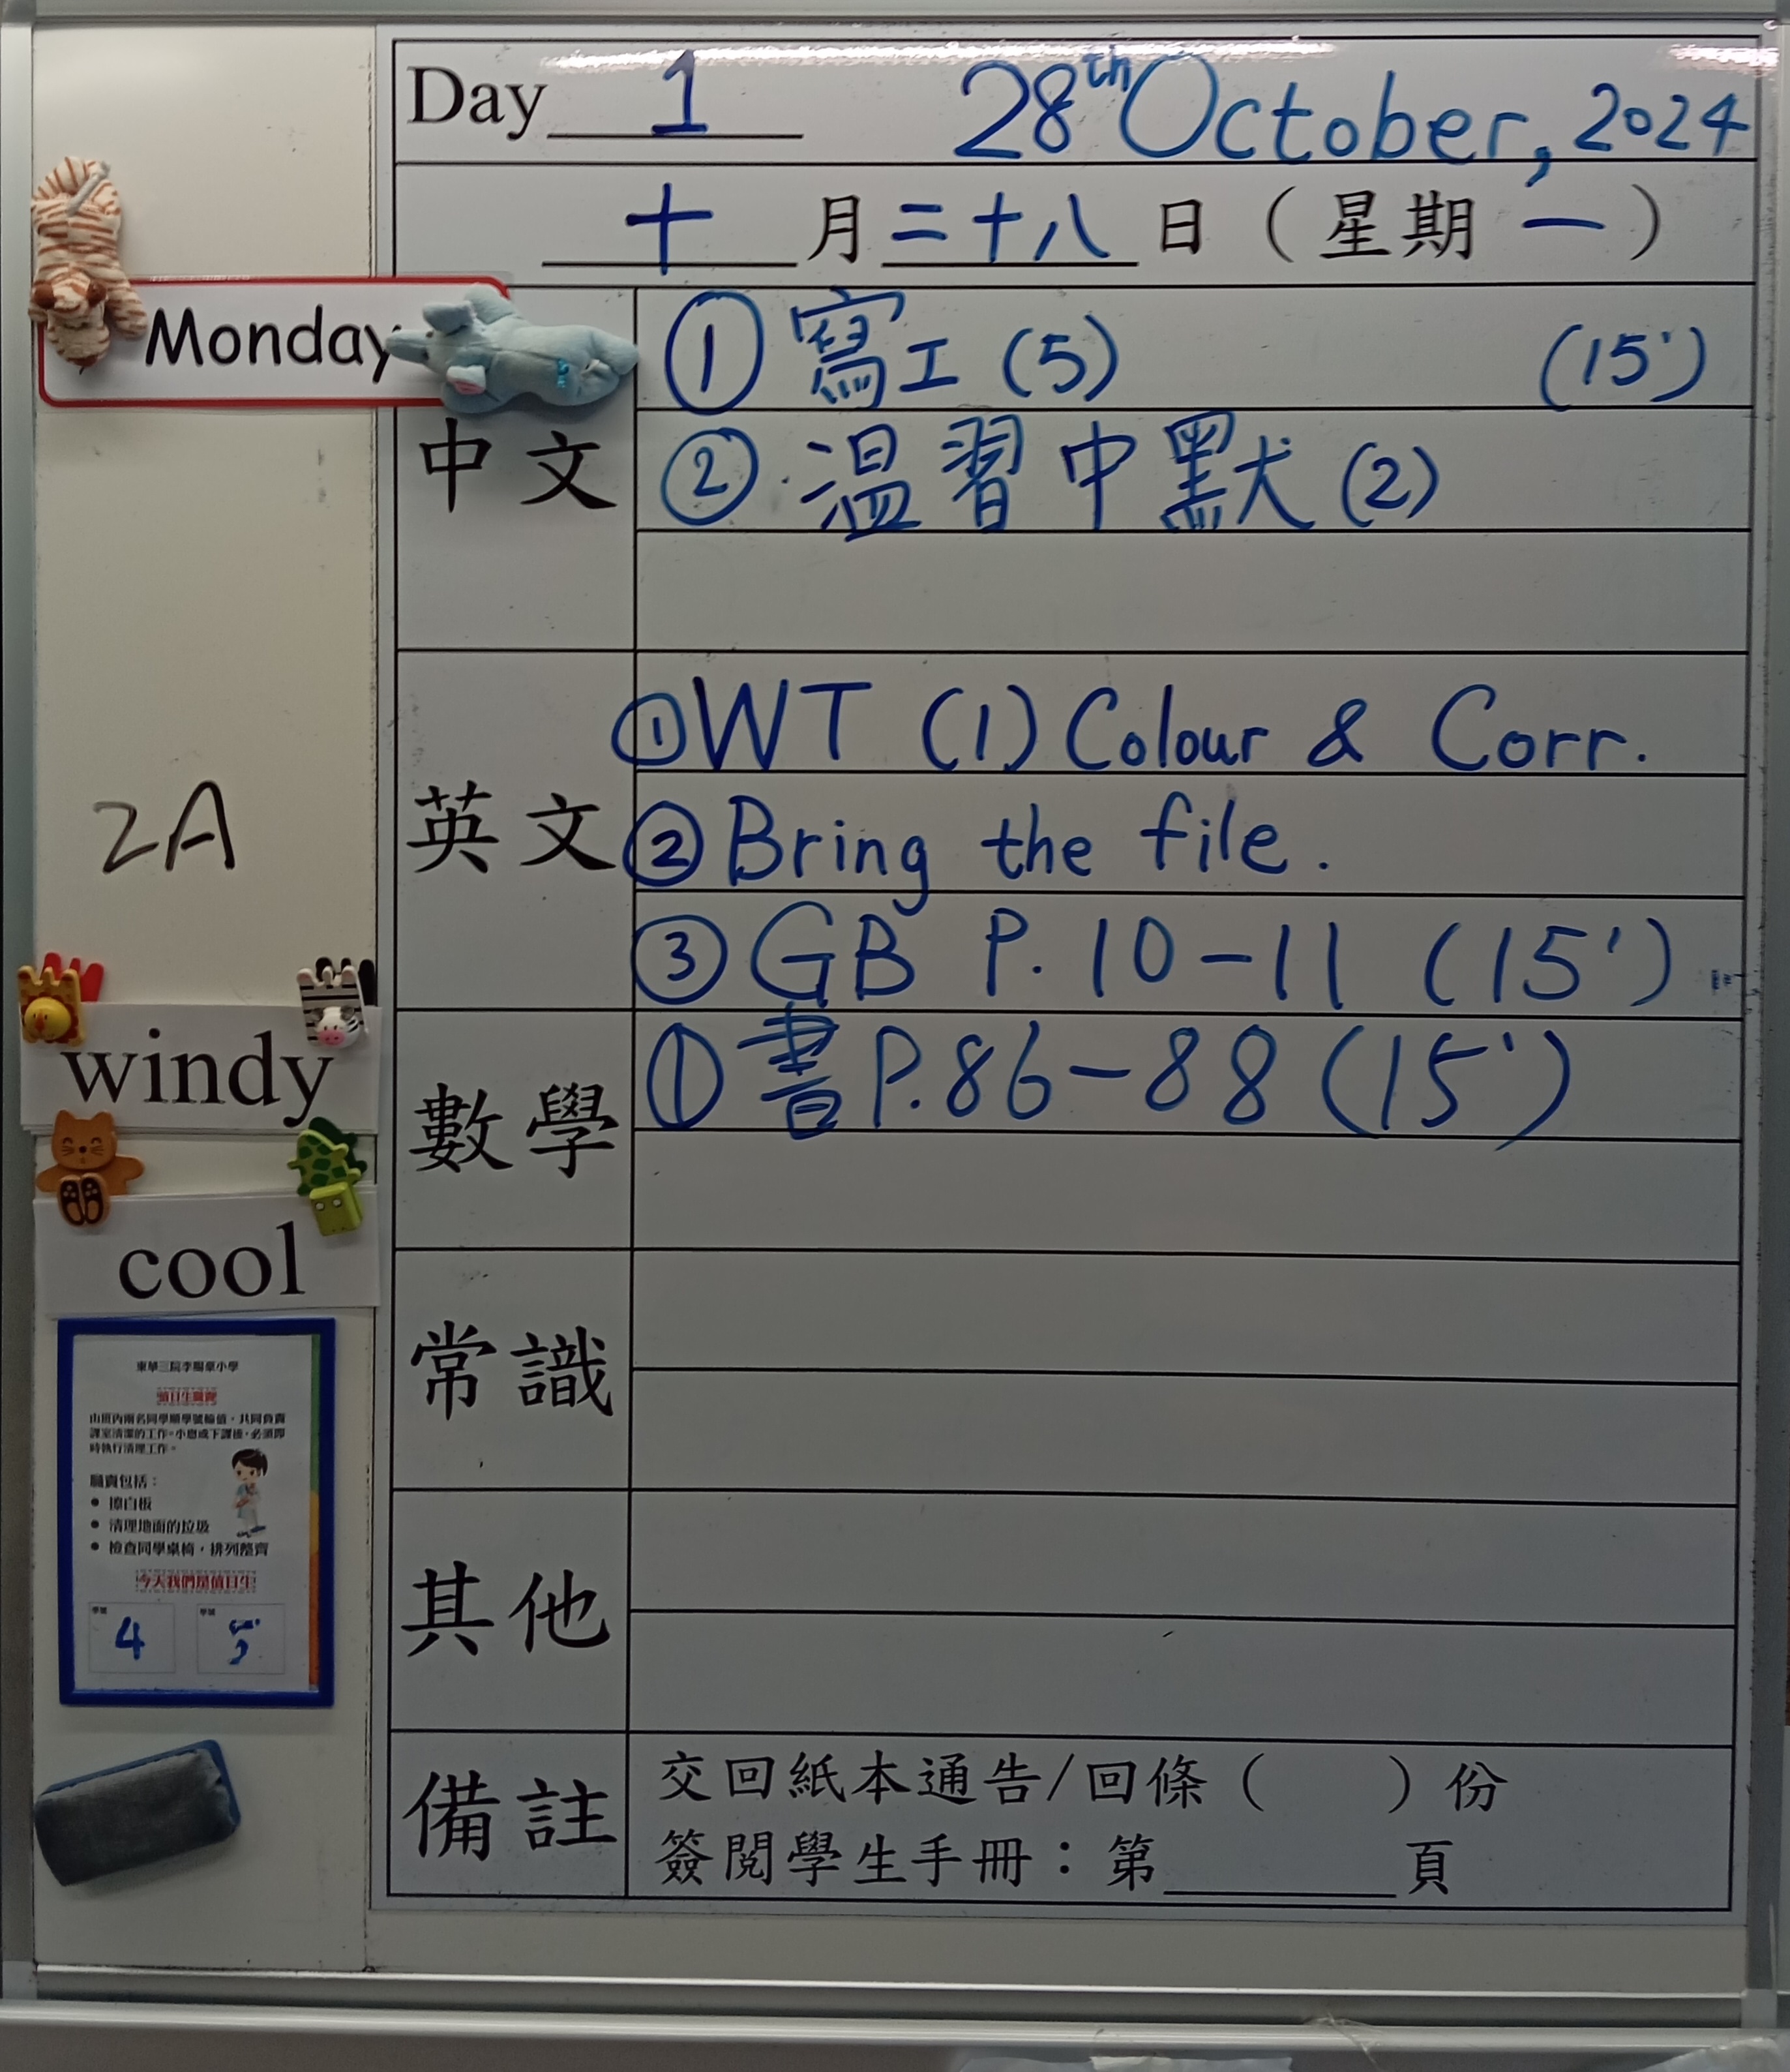 Day 1 28th October, 2024
十月二十八日（星期一）
Monday
中文
① 寫工 (5) (15')
② 溫習中默 (2)
英文
① WT (1) Colour & Corr.
② Bring the file.
③ GB P. 10-11 (15')
數學
① 書 P.86-88 (15')
常識
其他
備註
交回紙本通告/回條（ ）份
簽閱學生手冊：第______頁
2A
windy
cool
值日生職責
由班內兩名同學順學號輪值，共同負責
課室清潔的工作。小息或下課後，必須即
時執行清理工作。
職責包括：
• 擦白板
• 清理地面的垃圾
• 檢查同學桌椅，排列整齊
今天我們是值日生
學號 學號
4 5